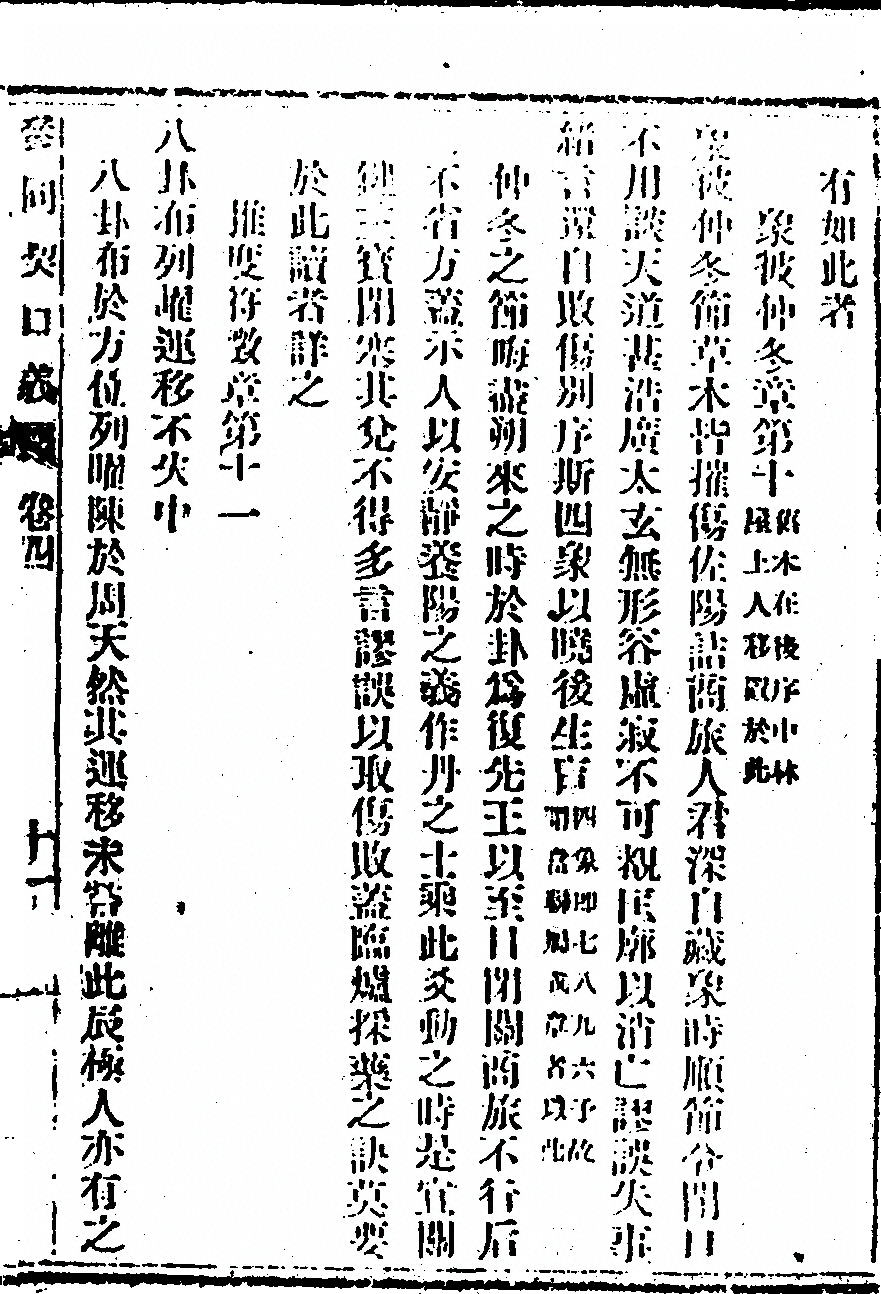 有如此者
象彼仲冬章第十舊本在後序中林屋上人移置於此
象彼仲冬節草木皆摧傷佐陽詰商旅人君深自藏象時順節令閉口
不用談天道甚浩廣太玄無形容虛寂不可覩匡郭以消亡謬誤失事
緒言還自敗傷別序斯四象以曉後生盲四象即七八九六予故謂當聯屬成章者以此
仲冬之節晦盡朔來之時於卦爲復先王以至日閉關商旅不行后
不省方蓋示人以安靜養陽之義作丹之士乘此爻動之時是宜關
鍵三寶閉塞其兌不得多言謬誤以取傷敗蓋臨爐採藥之訣莫要
於此讀者詳之
推度符徵章第十一
八卦布列曜運移不失中
八卦布於方位列曜陳於周天然其運移未嘗離此辰極人亦有之
參同契口義 卷四 十一